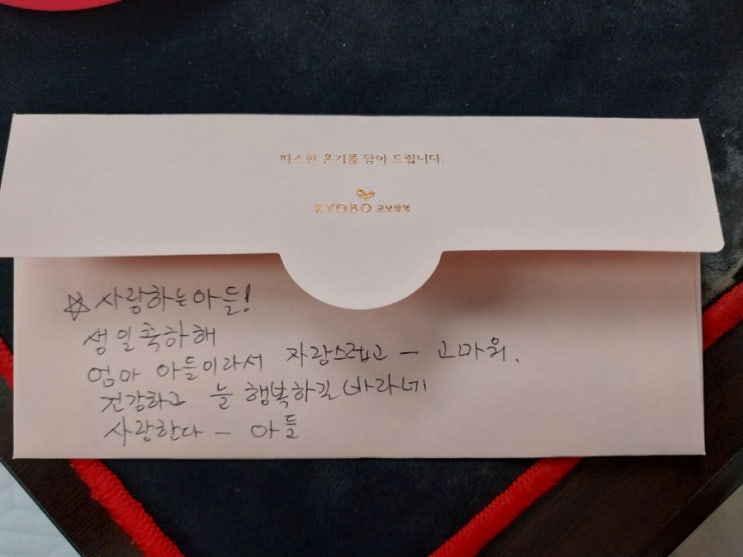 따스한 온기를 담아 드립니다.
KYOBO 교보생명
☆ 사랑하는 아들!
생일 축하해
엄마 아들이라서 자랑스럽고 - 고마워.
건강하고 늘 행복하길 바라네
사랑한다 - 아들